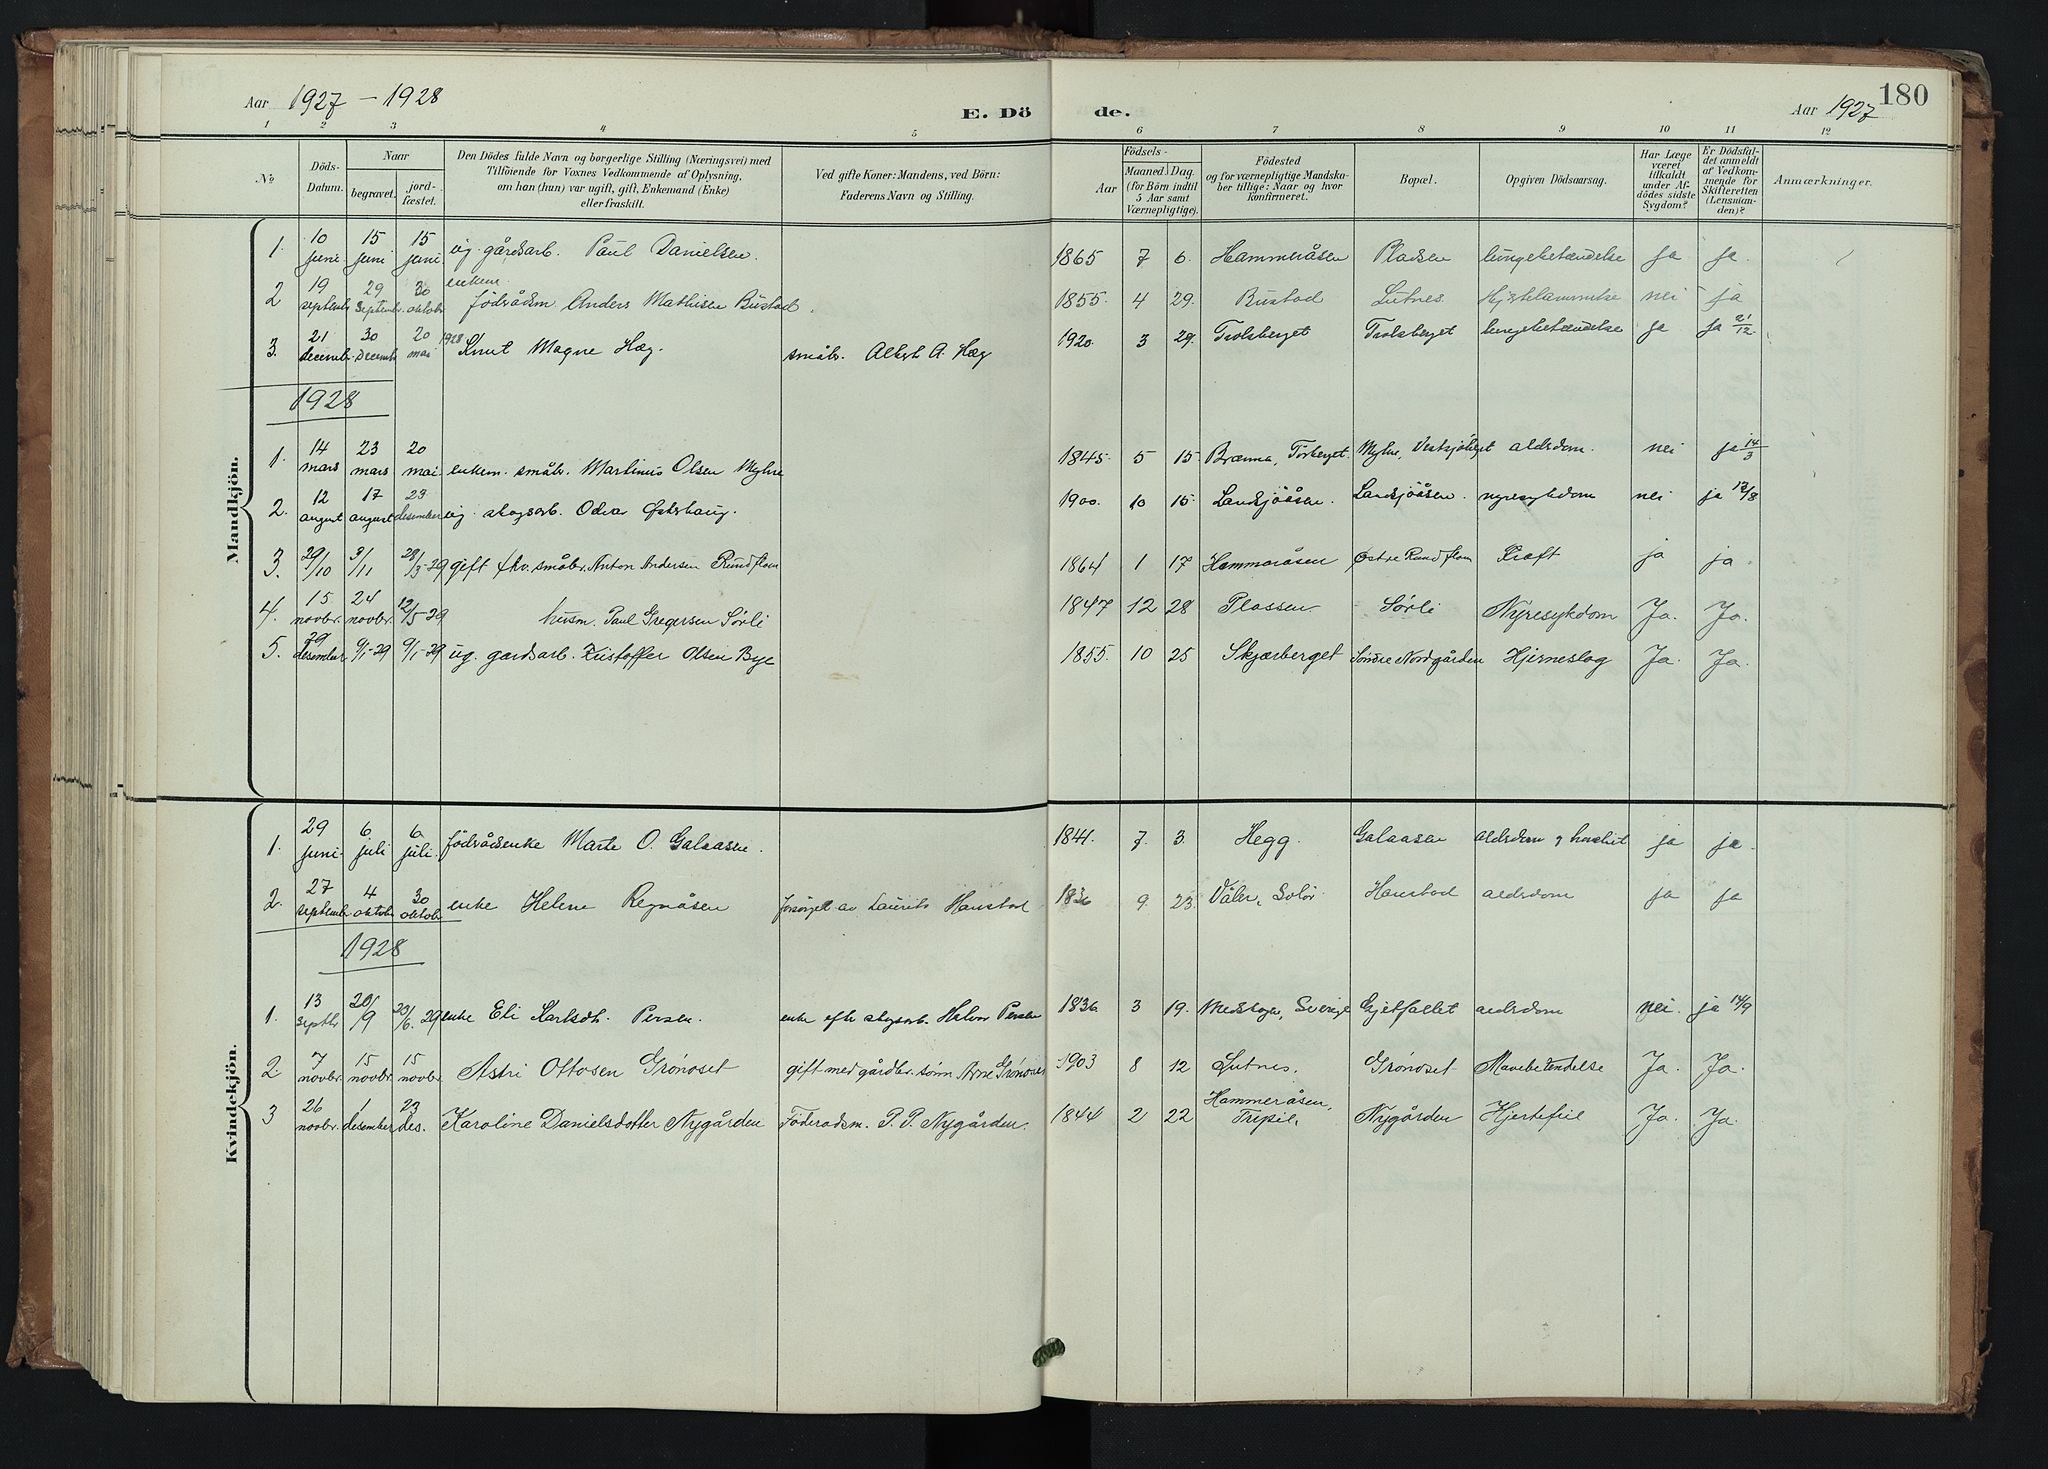 Aar 1927 - 1928
E. Dö de.
Aar 1927 180
1 2 3 4 5 6 7 8 9 10 11 12
No
Döds-Datum.
Naar
begravet.
jord-fæstet.
Den Dödes fulde Navn og borgerlige Stilling (Næringsvei) med
Tilföiende for Voxnes Vedkommende af Oplysning,
om han (hun) var ugift, gift, Enkemand (Enke)
eller fraskilt.
Ved gifte Koner: Mandens, ved Börn:
Faderens Navn og Stilling.
Födsels-
Aar
Maaned. Dag.
(for Börn indtil
5 Aar samt
Værnepligtige).
Födested
og for værnepligtige Mandska-
ber tillige: Naar og hvor
konfirmeret.
Bopæl.
Opgiven Dödsaarsag.
Har Læge
været
tilkaldt
under Af-
dödes sidste
Sygdom?
Er Dödsfal-
det anmeldt
af Vedkom-
mende for
Skifteretten
(Lensman-
den)?
Anmærkninger.
Mandkjön.
1. 10 juni 15 juni 15 juni ug. gårdsarb. Paul Danielsen. 1865 7 6. Hammeråsen Pladsen lungebetændelse ja ja.
2 19 septembr 29 septembr. 30 oktobr enkem. födrådsm. Anders Mathisen Bustad. 1855. 4 29. Bustad Lutnes. Hjertelammelse nei ja
3. 21 decembr. 30 Decembr 20 mai 1928 Knut Magne Hæg. småbr. Albert A. Hæg 1920. 3 29. Trolsberget Trolsberget lungebetændelse ja ja 21/12
1928
1. 14 mars 23 mars 20 mai enkem. småbr. Martinus Olsen Myhre 1845. 5 15 Brænna, Törberget. Myhre, Vestsjöberget aldrdom. nei ja 14/3
2. 12 august 17 august 23 desember ug. skogsarb. Odvar Østerhaug. 1900. 10 15. Landsjöåsen. Landsjöåsen. nyresykdom nei ja 13/8
3. 29/10 3/11 28/3-29 gift fhv. småbr. Anton Andersen Rundflom 1864 1 17 Hammeråsen Østre Rundflom Kræft ja ja.
4. 15 novbr. 24 novbr. 12/5-29 husm. Paul Gregersen Sörli 1847 12 28 Plassen Sörli Nyresykdom Ja. Ja.
5. 29 desember 9/1-29 9/1-29 ug. gardsarb. Kristoffer Olsen Bye 1855. 10 25 Skjærberget Söndre Nordgården Hjerneslag Ja. Ja.
Kvindekjön.
1. 29 juni. 6 juli 6 juli. födrådsenke Marte O. Galaasen. 1841. 7. 3. Hegg. Galaasen aldrdom ja ja.
2. 27 septembr 4 oktobr. 30 oktobr. enke Helene Regnåsen forsørget av Laurits Hanstad 1836 9. 23. Våler, Solör Hanstad aldrdom ja ja
1928
1. 13 septbr 20/9 29/6. 29 enke Eli Karlsdt. Persen. enke efter skogsarb. Halvor Persen 1836 3 19. Medskogen, Sverige Gjetfallet aldrdom nei. ja 14/9
2 7 novbr. 15 novbr. 15 novbr. Astri Ottosen Grönoset gift med gårdbr. sönn Arne Grönoset 1903 8 12 Lutnes. Grönoset Mavebetendelse Ja. Ja.
3 26 novbr. 1 desember 23 des. Karoline Danielsdotter Nygården Föderadsm. P. P. Nygården. 1844 2 22 Hammeråsen, Trysil. Nygården Hjertefeil Ja. Ja.